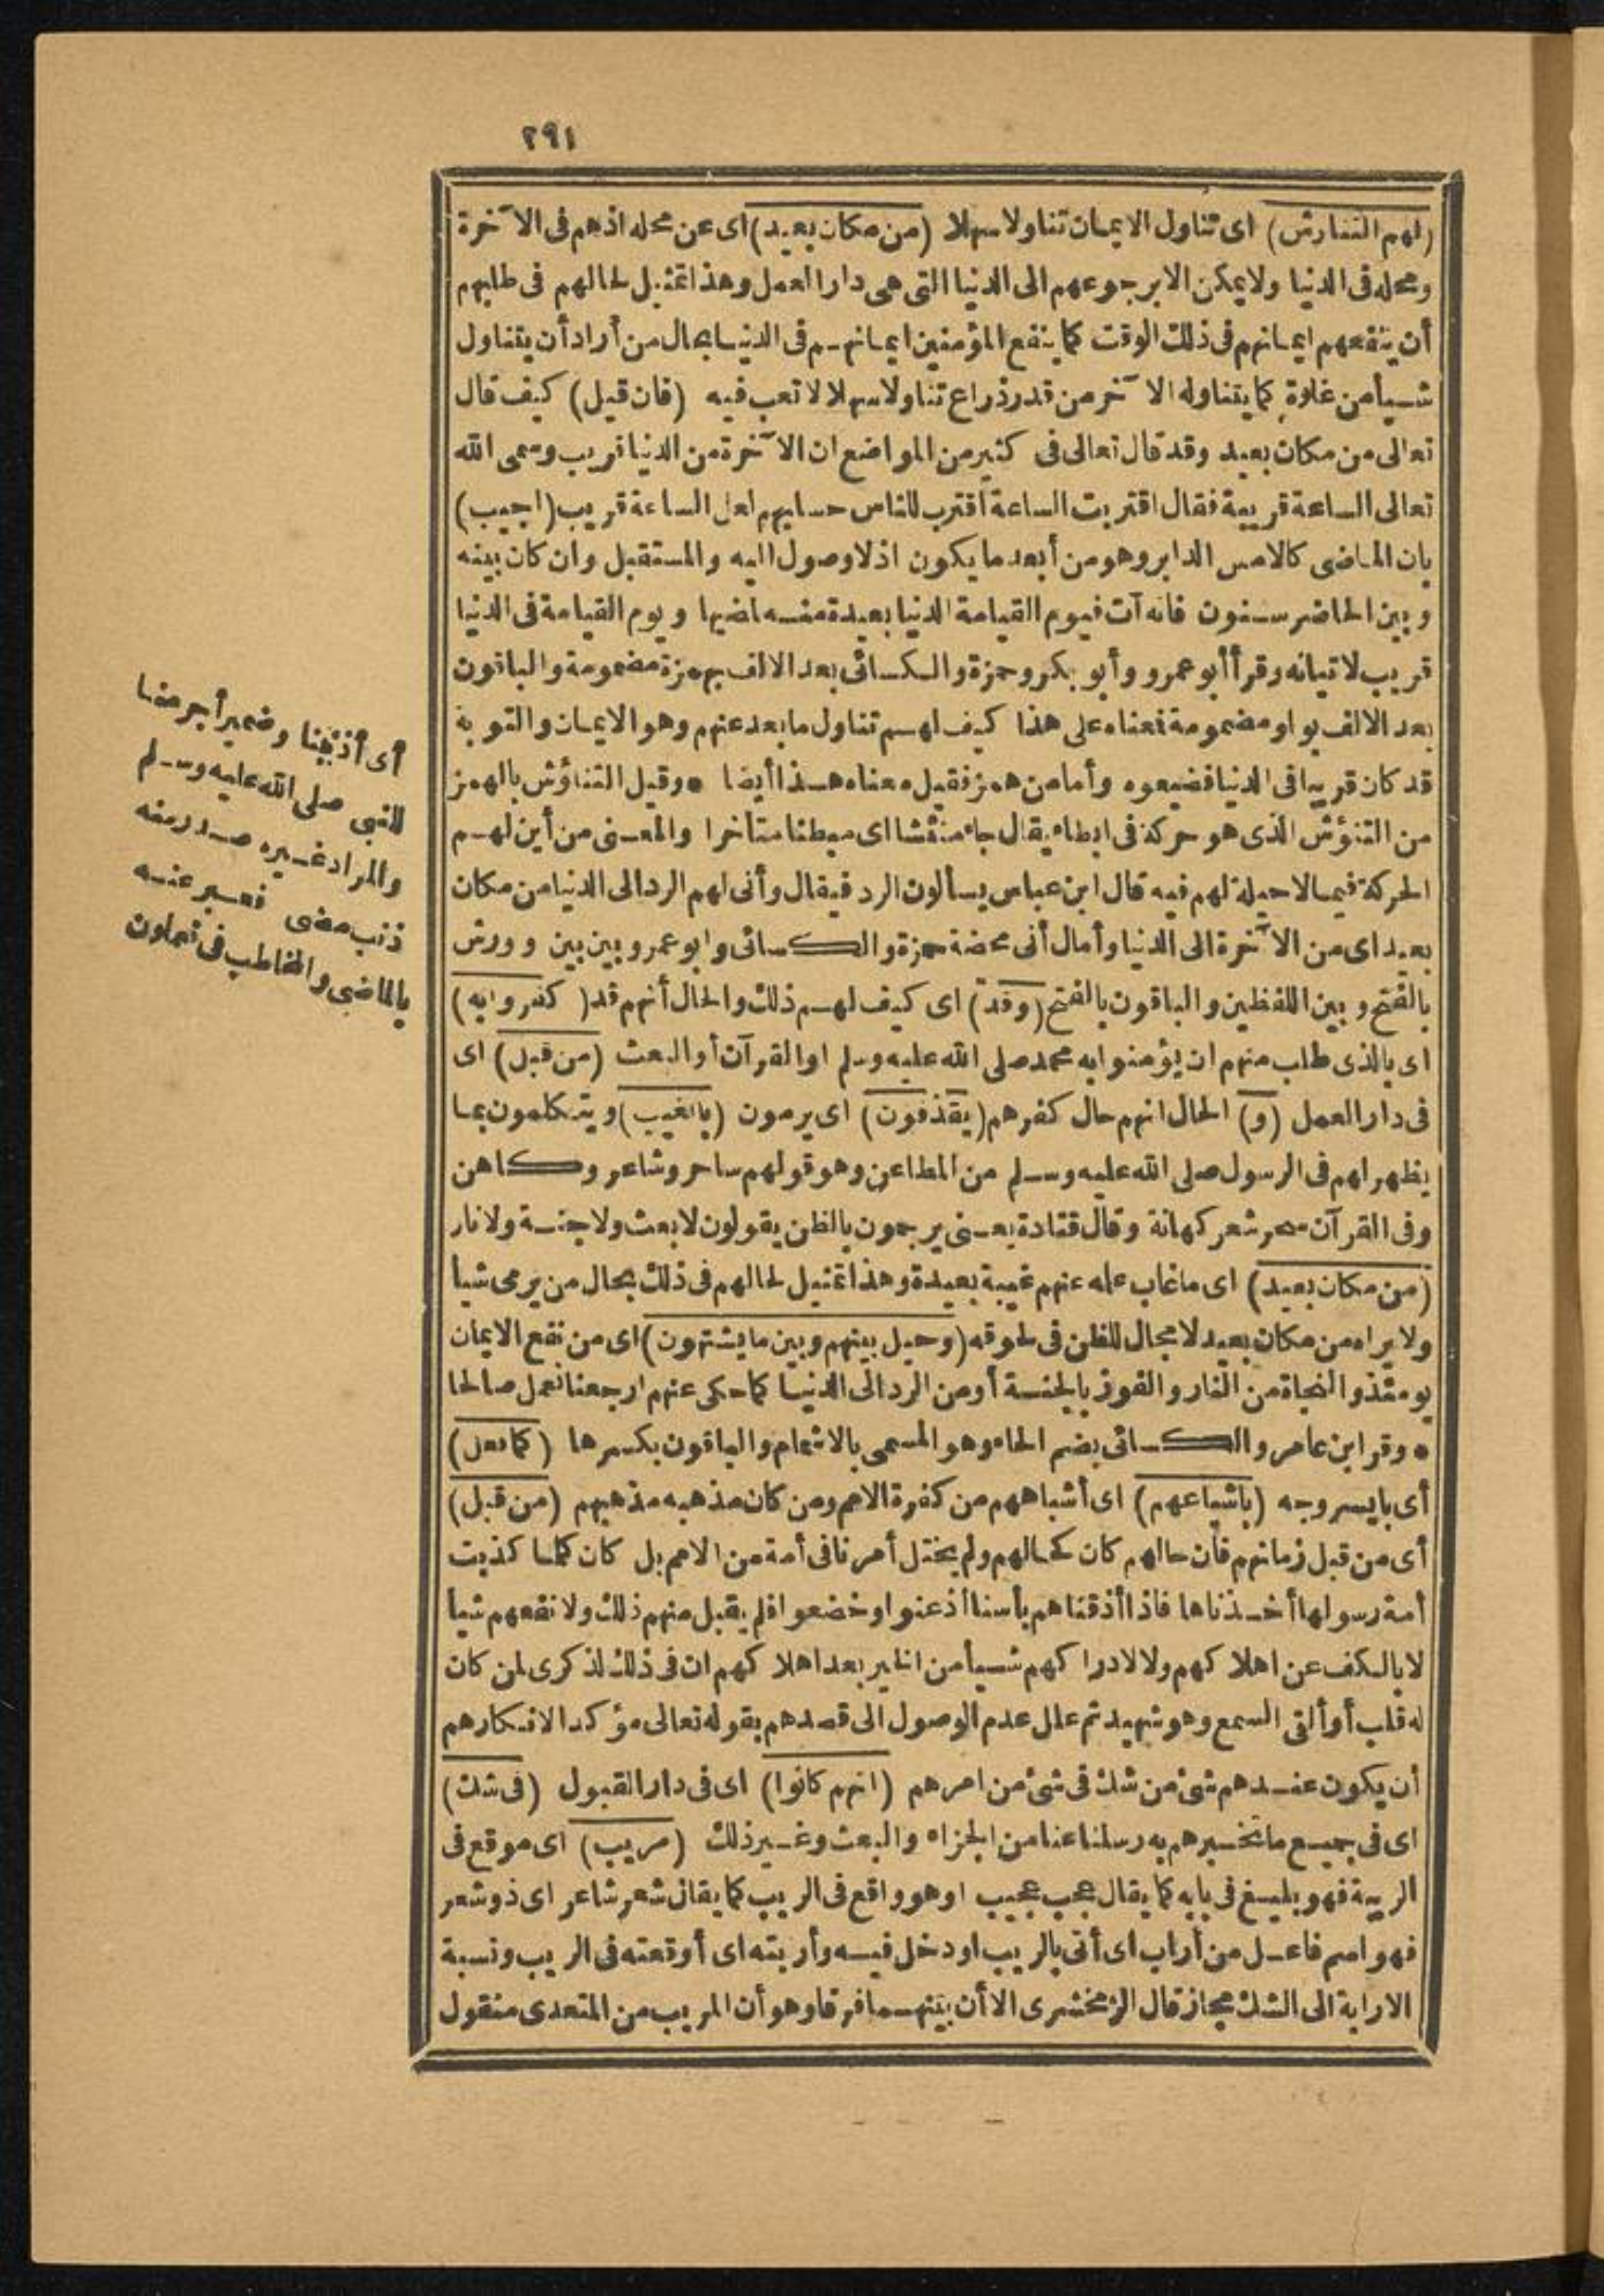 ٢٩١
(لهم التناوش) اى تناول الايمان تناولا سهلا (من مكان بعيد) اى عن محله اذهم فى الآخرة
ومحله فى الدنيا ولا يمكن الا برجوعهم الى الدنيا التى هى دار العمل وهذا تمثيل لحالهم فى طلبهم
أن ينفعهم ايمانهم فى ذلك الوقت كما ينفع المؤمنين ايمانهم فى الدنيا بحال من أراد أن يتناول
شيأ من غلوة كما يتناوله الآخر من قدر ذراع تناولا سهلا لا تعب فيه (فان قيل) كيف قال
تعالى من مكان بعيد وقد قال تعالى فى كثير من المواضع ان الآخرة من الدنيا قريب وسمى الله
تعالى الساعة قريبة فقال اقتربت الساعة اقترب للناس حسابهم لعل الساعة قريب (اجيب)
بان الماضى كالامس الدابر وهو من أبعد ما يكون اذ لا وصول اليه والمستقبل وان كان بينه
وبين الحاضر سنون فانه آت فيوم القيامة الدنيا بعيدة منه لمضيها ويوم القيامة فى الدنيا
قريب لاتيانه وقرأ أبو عمرو وأبو بكر وحمزة والكسائى بعد الالف بهمزة مضمومة والباقون
بعد الالف بواو مضمومة فمعناه على هذا كيف لهم تناول ما بعد عنهم وهو الايمان والتوبة
قد كان قريبا فى الدنيا فضيعوه وأما من همز فقيل معناه هذا أيضا * وقيل التناؤش بالهمز
من التنؤش الذى هو حركة فى ابطاء يقال جاء منئشا اى مبطئا متأخرا والمعنى من أين لهم
الحركة فيما لا حيلة لهم فيه قال ابن عباس يسألون الرد فيقال وأنى لهم الرد الى الدنيا من مكان
بعيد اى من الآخرة الى الدنيا وأمال أنى محضة حمزة والكسائى وابو عمرو بين بين وورش
بالفتح وبين اللفظين والباقون بالفتح (وقد) اى كيف لهم ذلك والحال أنهم قد (كفروا به)
اى بالذى طلب منهم ان يؤمنوا به محمد صلى الله عليه وسلم او القرآن أو البعث (من قبل) اى
فى دار العمل (و) الحال انهم حال كفرهم (يقذفون) اى يرمون (بالغيب) ويتكلمون بما
يظهر لهم فى الرسول صلى الله عليه وسلم من المطاعن وهو قولهم ساحر وشاعر وكاهن
وفى القرآن سحر شعر كهانة وقال قتادة يعنى يرجمون بالظن يقولون لا بعث ولا جنة ولا نار
(من مكان بعيد) اى ما غاب علمه عنهم غيبة بعيدة وهذا تمثيل لحالهم فى ذلك بحال من يرمى شيأ
ولا يراه من مكان بعيد لا مجال للظن فى لحوقه (وحيل بينهم وبين ما يشتهون) اى من نفع الايمان
يومئذ والنجاة من النار والفوز بالجنة أو من الرد الى الدنيا كما حكى عنهم ارجعنا نعمل صالحا
* وقر ابن عامر والكسائى بضم الحاء وهو المسمى بالاشمام والباقون بكسرها (كما فعل)
أى بايسر وجه (باشياعهم) اى أشباههم من كفرة الامم ومن كان مذهبه مذهبهم (من قبل)
أى من قبل زمانهم فان حالهم كان كحالهم ولم يختل أمرنا فى أمة من الامم بل كان كلما كذبت
أمة رسولها أخذناها فاذا أذقناهم بأسنا أذعنوا وخضعوا فلم يقبل منهم ذلك ولا نفعهم شيأ
لا بالكف عن اهلاكهم ولا لادراكهم شيأ من الخير بعد اهلاكهم ان فى ذلك لذكرى لمن كان
له قلب أو ألقى السمع وهو شهيد ثم علل عدم الوصول الى قصدهم بقوله تعالى مؤكدا لانكارهم
أن يكون عندهم شئ من شك فى شئ من امرهم (انهم كانوا) اى فى دار القبول (فى شك)
اى فى جميع ما تخبرهم به رسلنا عنا من الجزاء والبعث وغير ذلك (مريب) اى موقع فى
الريبة فهو بليغ فى بابه كما يقال عجب عجيب او هو واقع فى الريب كما يقال شعر شاعر اى ذو شعر
فهو اسم فاعل من أراب اى أتى بالريب او دخل فيه وأربته اى أوقعته فى الريب ونسبة
الارابة الى الشك مجاز قال الزمخشرى الا أن بينهما فرقا وهو أن المريب من المتعدى منقول
أى أذنبنا وضمير أجرمنا
للنبى صلى الله عليه وسلم
والمراد غيره صدر منه
ذنب مضى فعبر عنه
بالماضى والمخاطب فى تعملون